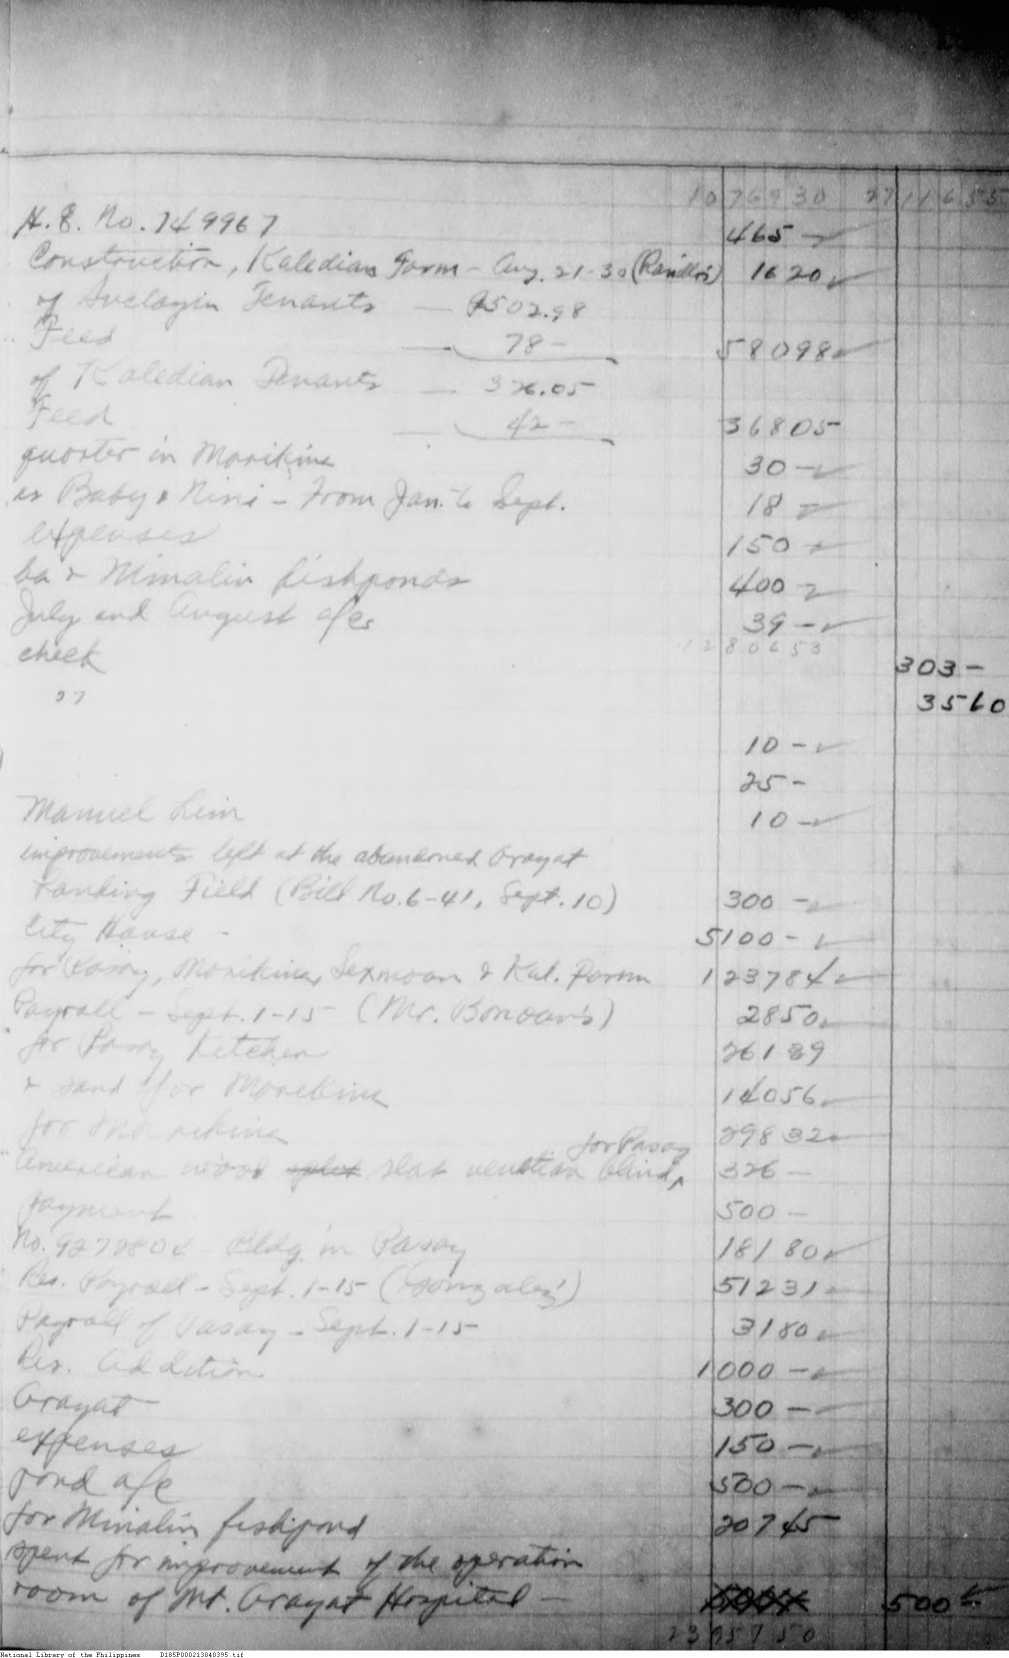 10 769 30 27 116 55
H.E. No. 749967 465 -
Construction, Kaledian Farm - Aug. 21-30 (Ramillo's) 16 20
of Suclayin Tenants — ₱502.98
Feed — 78 - 580 98
of Kaledian Tenants — 326.05
Feed — 42 - 368 05
quarter in Marikina 30 -
Baby & Nini - From Jan. to Sept. 18 -
expenses 150 -
ba & Minalin fishponds 400 -
July and August a/cs 39 -
12 806 53
check 303 -
" 35 60
10 -
25 -
Manuel Lim 10 -
improvements left at the abandoned Arayat
Landing Field (Bill No. 6-41, Sept. 10) 300 -
City House - 5100 -
for Pasay, Marikina, Sexmoan & Kal. Farm 1237 84
Payroll - Sept. 1-15 (Mr. Bonoan's) 28 50
for Pasay Kitchen 261 89
& sand for Marikina 140 56
for Marikina 298 32
for Pasay
American wood slat venetian blind, 326 -
payment 500 -
No. 927280 - Bldg in Pasay 181 80
Res. Payroll - Sept. 1-15 (Gonzales') 512 31
Payroll of Pasay - Sept. 1-15 31 80
Res. Addition 1000 -
Arayat 300 -
expenses 150 -
pond a/c 500 -
for Minalin fishpond 207 45
spent for improvement of the operation
room of Mt. Arayat Hospital - 500 -
23 957 50
National Library of the Philippines D185P000213040395.tif